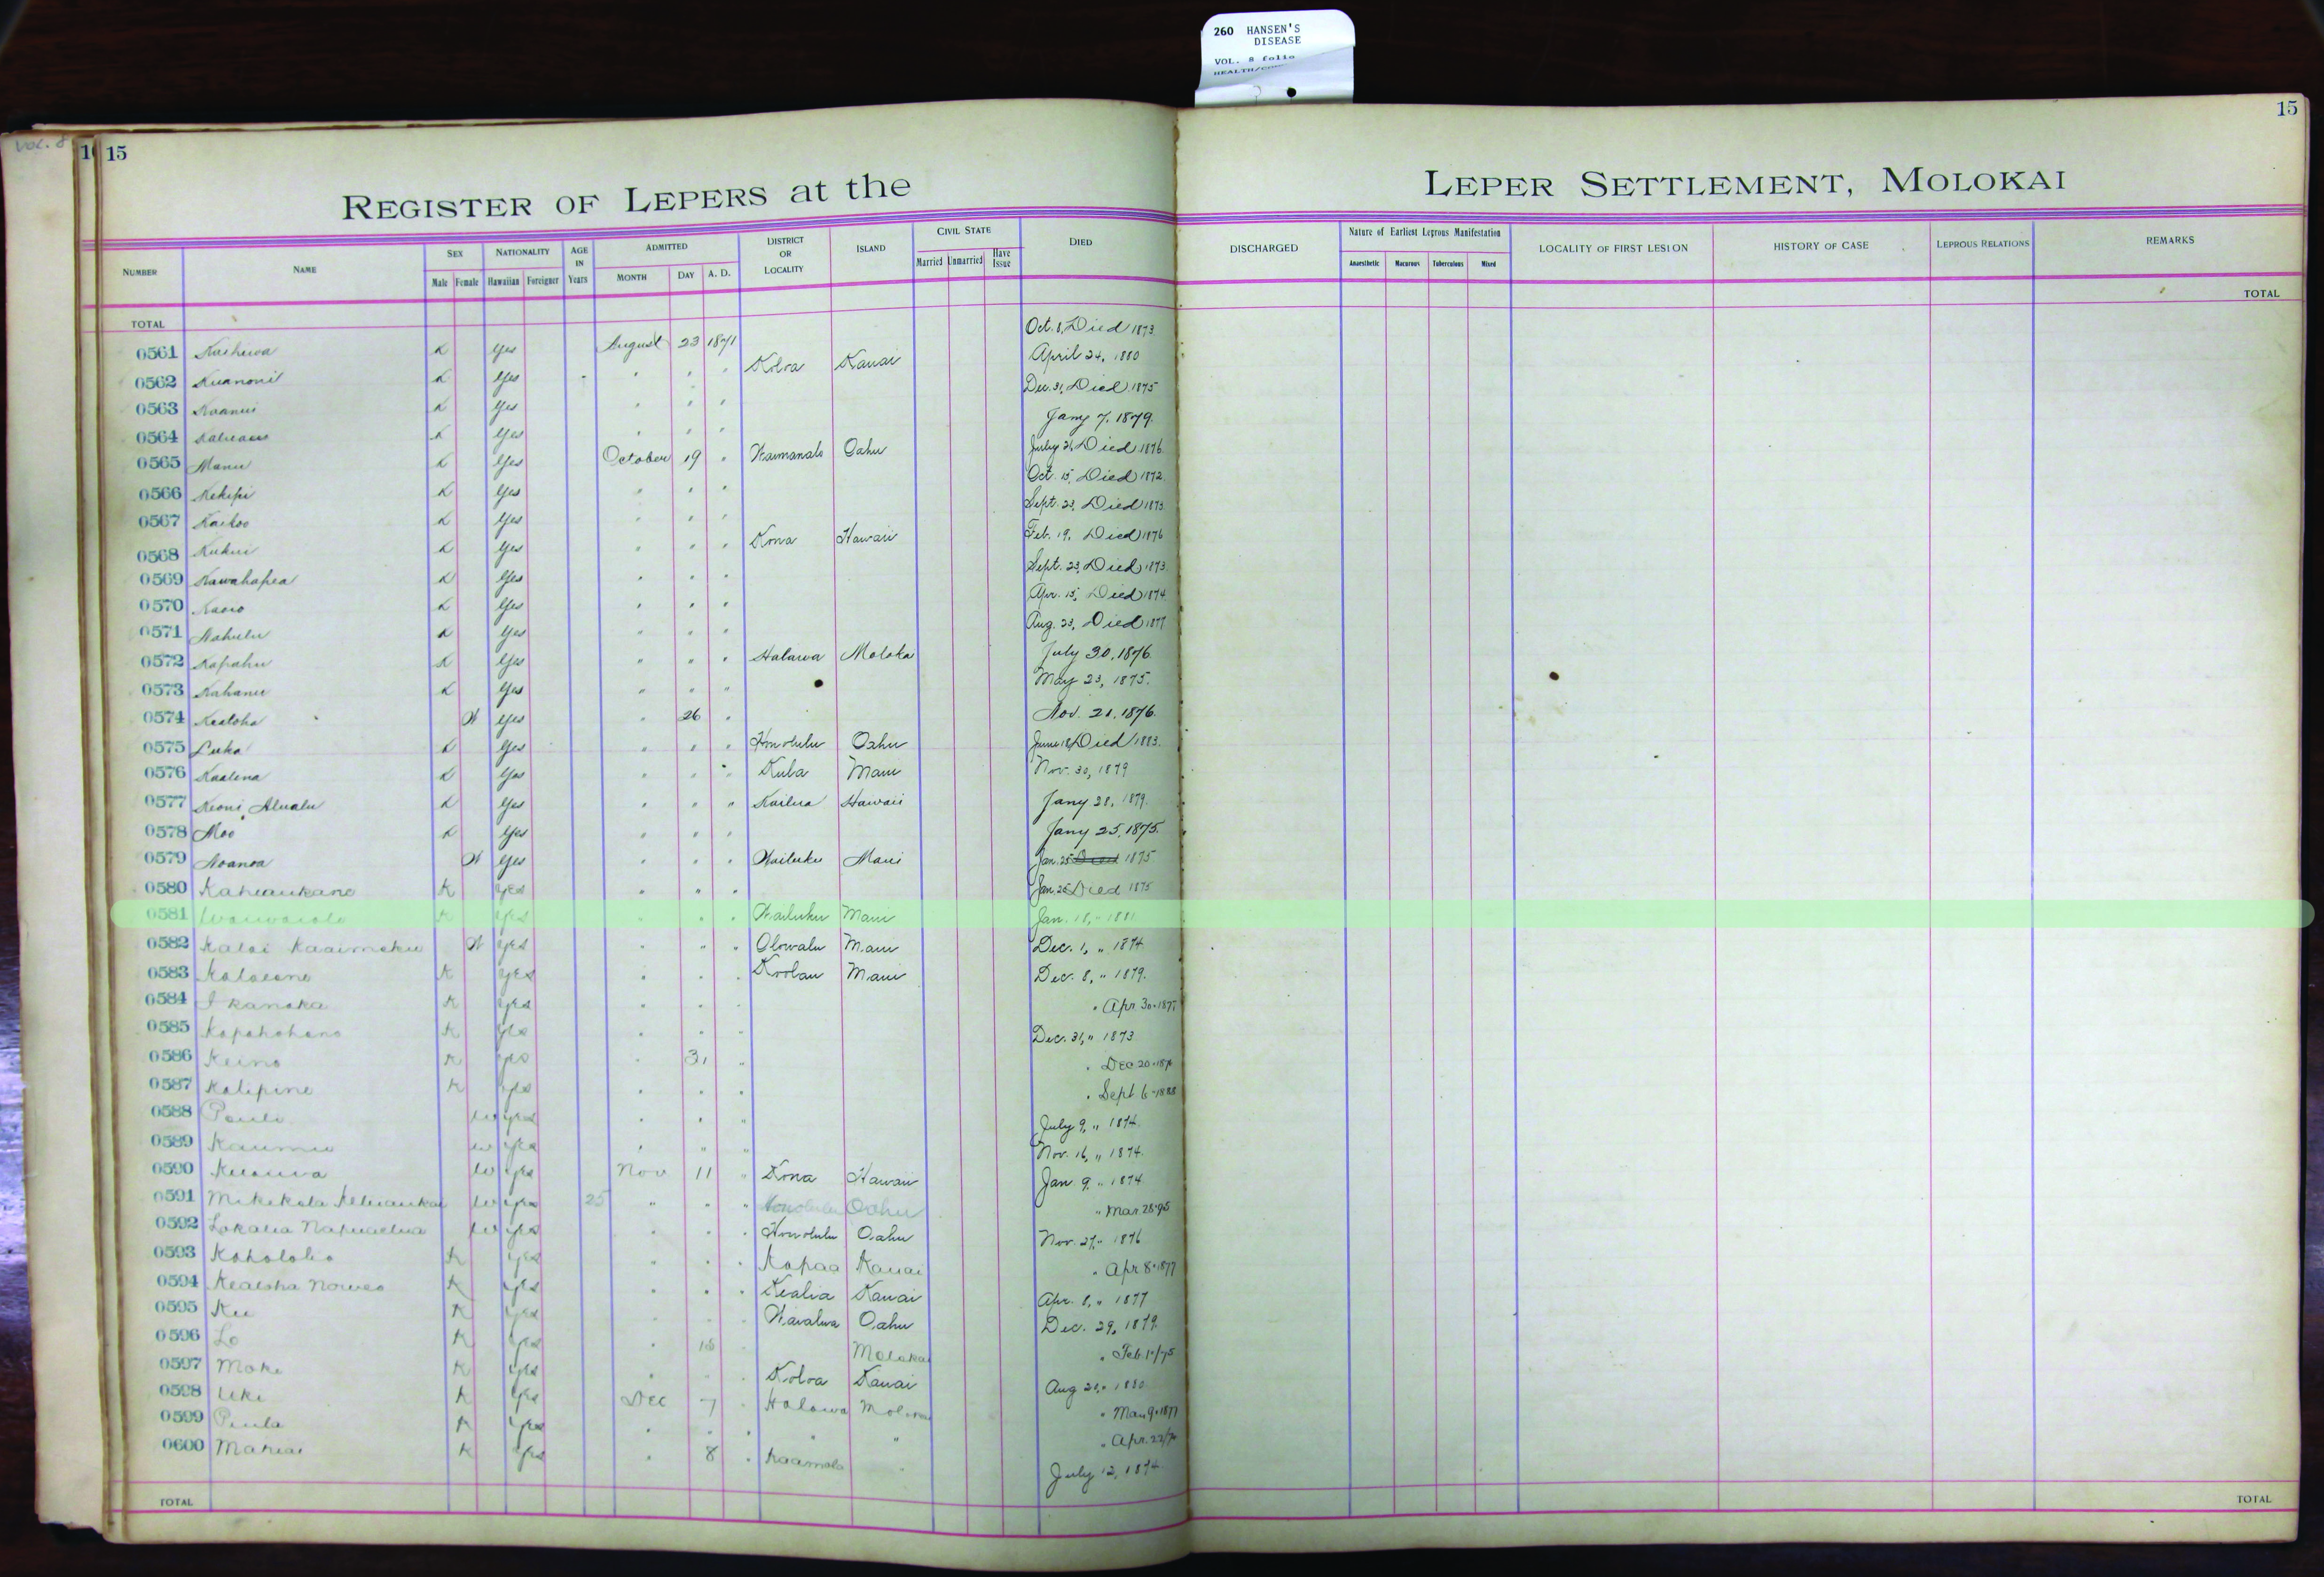 260 HANSEN'S
DISEASE
VOL. 8 folio
VOL. 8
15
15
REGISTER OF LEPERS at the LEPER SETTLEMENT, MOLOKAI
NUMBER NAME SEX Male Female NATIONALITY Hawaiian Foreigner AGE IN Years ADMITTED MONTH DAY A. D. DISTRICT OR LOCALITY ISLAND CIVIL STATE Married Unmarried Have Issue DIED DISCHARGED Nature of Earliest Leprous Manifestation Anaesthetic Macarous Tuberculous Mixed LOCALITY OF FIRST LESION HISTORY OF CASE LEPROUS RELATIONS REMARKS
TOTAL TOTAL
0561 K Yes August 23 1871 Oct. 8, Died 1873
0562 K Yes " " " Koloa Kauai April 24, 1880
0563 K Yes " " " Dec. 31, Died 1875
0564 K Yes " " " Jany 7, 1879.
0565 Manu K Yes October 19 " Waimanalo Oahu July 21, Died 1876
0566 Kekipi K Yes " " " Oct. 15, Died 1872
0567 Kaikoo K Yes " " " Sept. 23, Died 1873
0568 Kukui K Yes " " " Kona Hawaii Feb. 19, Died 1876
0569 Kawahapea K Yes " " " Sept. 23, Died 1873
0570 K Yes " " " Apr. 15, Died 1874
0571 Nahulu K Yes " " " Aug. 23, Died 1877
0572 Kapahu K Yes " " " Halawa Moloka July 30, 1876
0573 Kahanu K Yes " " " May 23, 1875.
0574 Kealoha W Yes " 26 " Nov. 21, 1876.
0575 Luka K Yes " " " Honolulu Oahu June 18, Died 1883.
0576 Kaalena K Yes " " " Kula Maui Nov. 30, 1879
0577 Keoni Alualu K Yes " " " Kailua Hawaii Jany 28, 1879.
0578 Moo K Yes " " " Jany 25, 1875.
0579 Noanoa W Yes " " " Wailuku Maui Jan. 25 Died 1875
0580 Kahaukane K Yes " " " Jan. 25 Died 1875
0581 Waiwaiole K Yes " " " Wailuku Maui Jan. 18, " 1881
0582 Kaloi Kaaimoku W Yes " " " Olowalu Maui Dec. 1, " 1874
0583 K Yes " " " Koolau Maui Dec. 8, " 1879.
0584 I kanaka K Yes " " " " Apr 30 - 1877
0585 Kapahohano K Yes " " " Dec. 31, " 1873
0586 Keino K Yes " 31 " " Dec 20 -
0587 Kalipine K Yes " " " " Sept 6 - 1888
0588 Pauli W Yes " " " July 9, " 1874.
0589 Kaumu W Yes " " " Nov. 16, " 1874.
0590 W Yes Nov 11 " Kona Hawaii Jan. 9, " 1874
0591 W Yes 25 " " " Honolulu Oahu " Mar. 28-75
0592 W Yes " " " Honolulu Oahu Nov. 27, " 1876
0593 Kohololio K Yes " " " Kapaa Kauai " Apr 8 - 1877
0594 Kealoha K Yes " " " Kealia Kauai Apr. 8, " 1877
0595 Ku K Yes " " " Waialua Oahu Dec. 29, 1879.
0596 Lo K Yes " 18 " Molokai " Feb.
0597 Moke K Yes " " " Koloa Kauai Aug 21, " 1880
0598 Uki K Yes Dec 7 " Halawa Molokai " Mar. 9 - 1877
0599 Paula K Yes " " " " " " Apr. 22/
0600 Mahiai K Yes " 8 " Kaamola " July 12, 1874
TOTAL TOTAL